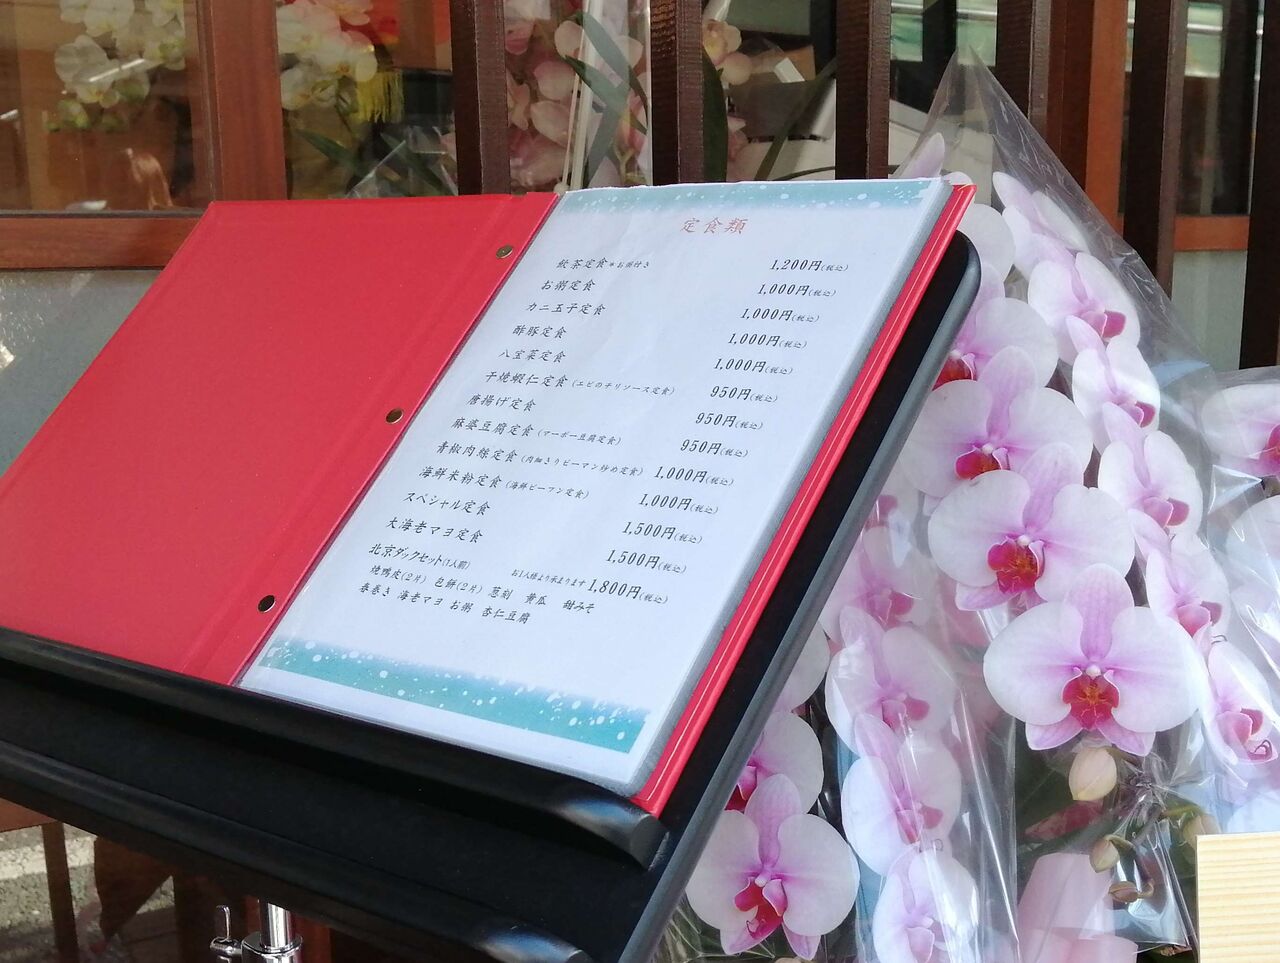 定食類
飲茶定食※お粥付き 1,200円(税込)
お粥定食 1,000円(税込)
カニ玉子定食 1,000円(税込)
酢豚定食 1,000円(税込)
八宝菜定食 1,000円(税込)
干焼蝦仁定食(エビのチリソース定食) 950円(税込)
唐揚げ定食 950円(税込)
麻婆豆腐定食(マーボー豆腐定食) 950円(税込)
青椒肉絲定食(肉細きりピーマン炒め定食) 1,000円(税込)
海鮮米粉定食(海鮮ビーフン定食) 1,000円(税込)
スペシャル定食 1,500円(税込)
大海老マヨ定食 1,500円(税込)
北京ダックセット(1人前) お1人様より承まります 1,800円(税込)
焼鴨皮(2片) 包餅(2片) 葱刻 黄瓜 甜みそ
春巻き 海老マヨ お粥 杏仁豆腐